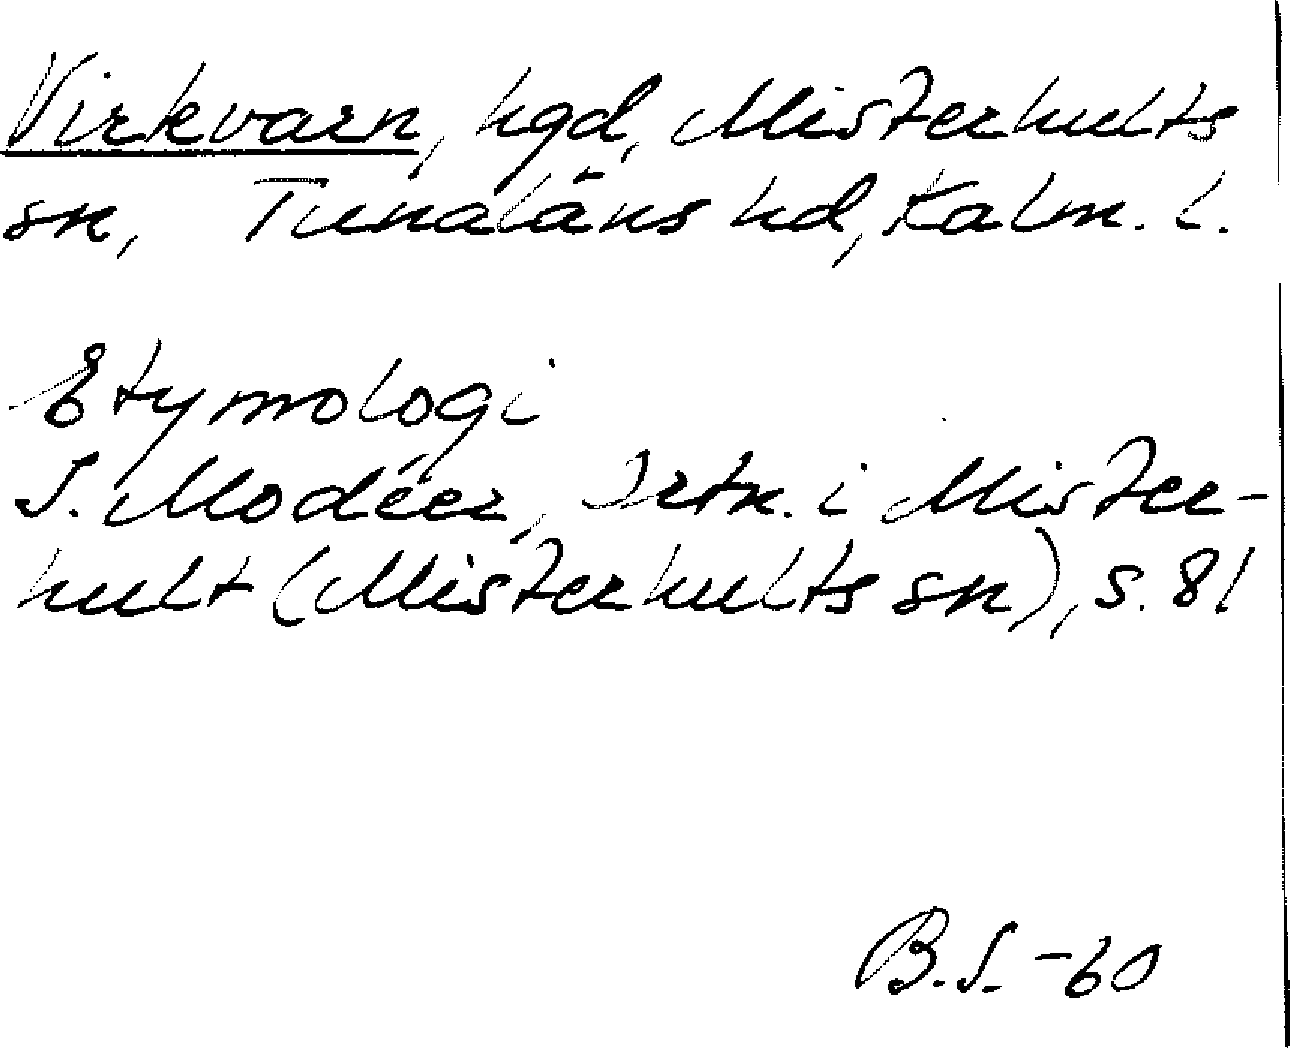 Virkvarn, hgd, Misterhults
sn, Tunaläns hd, Kalm. l.
Etymologi
I. Modéer, Ortn. i Mister-
hult (Misterhults sn), s. 81
B.S. -60